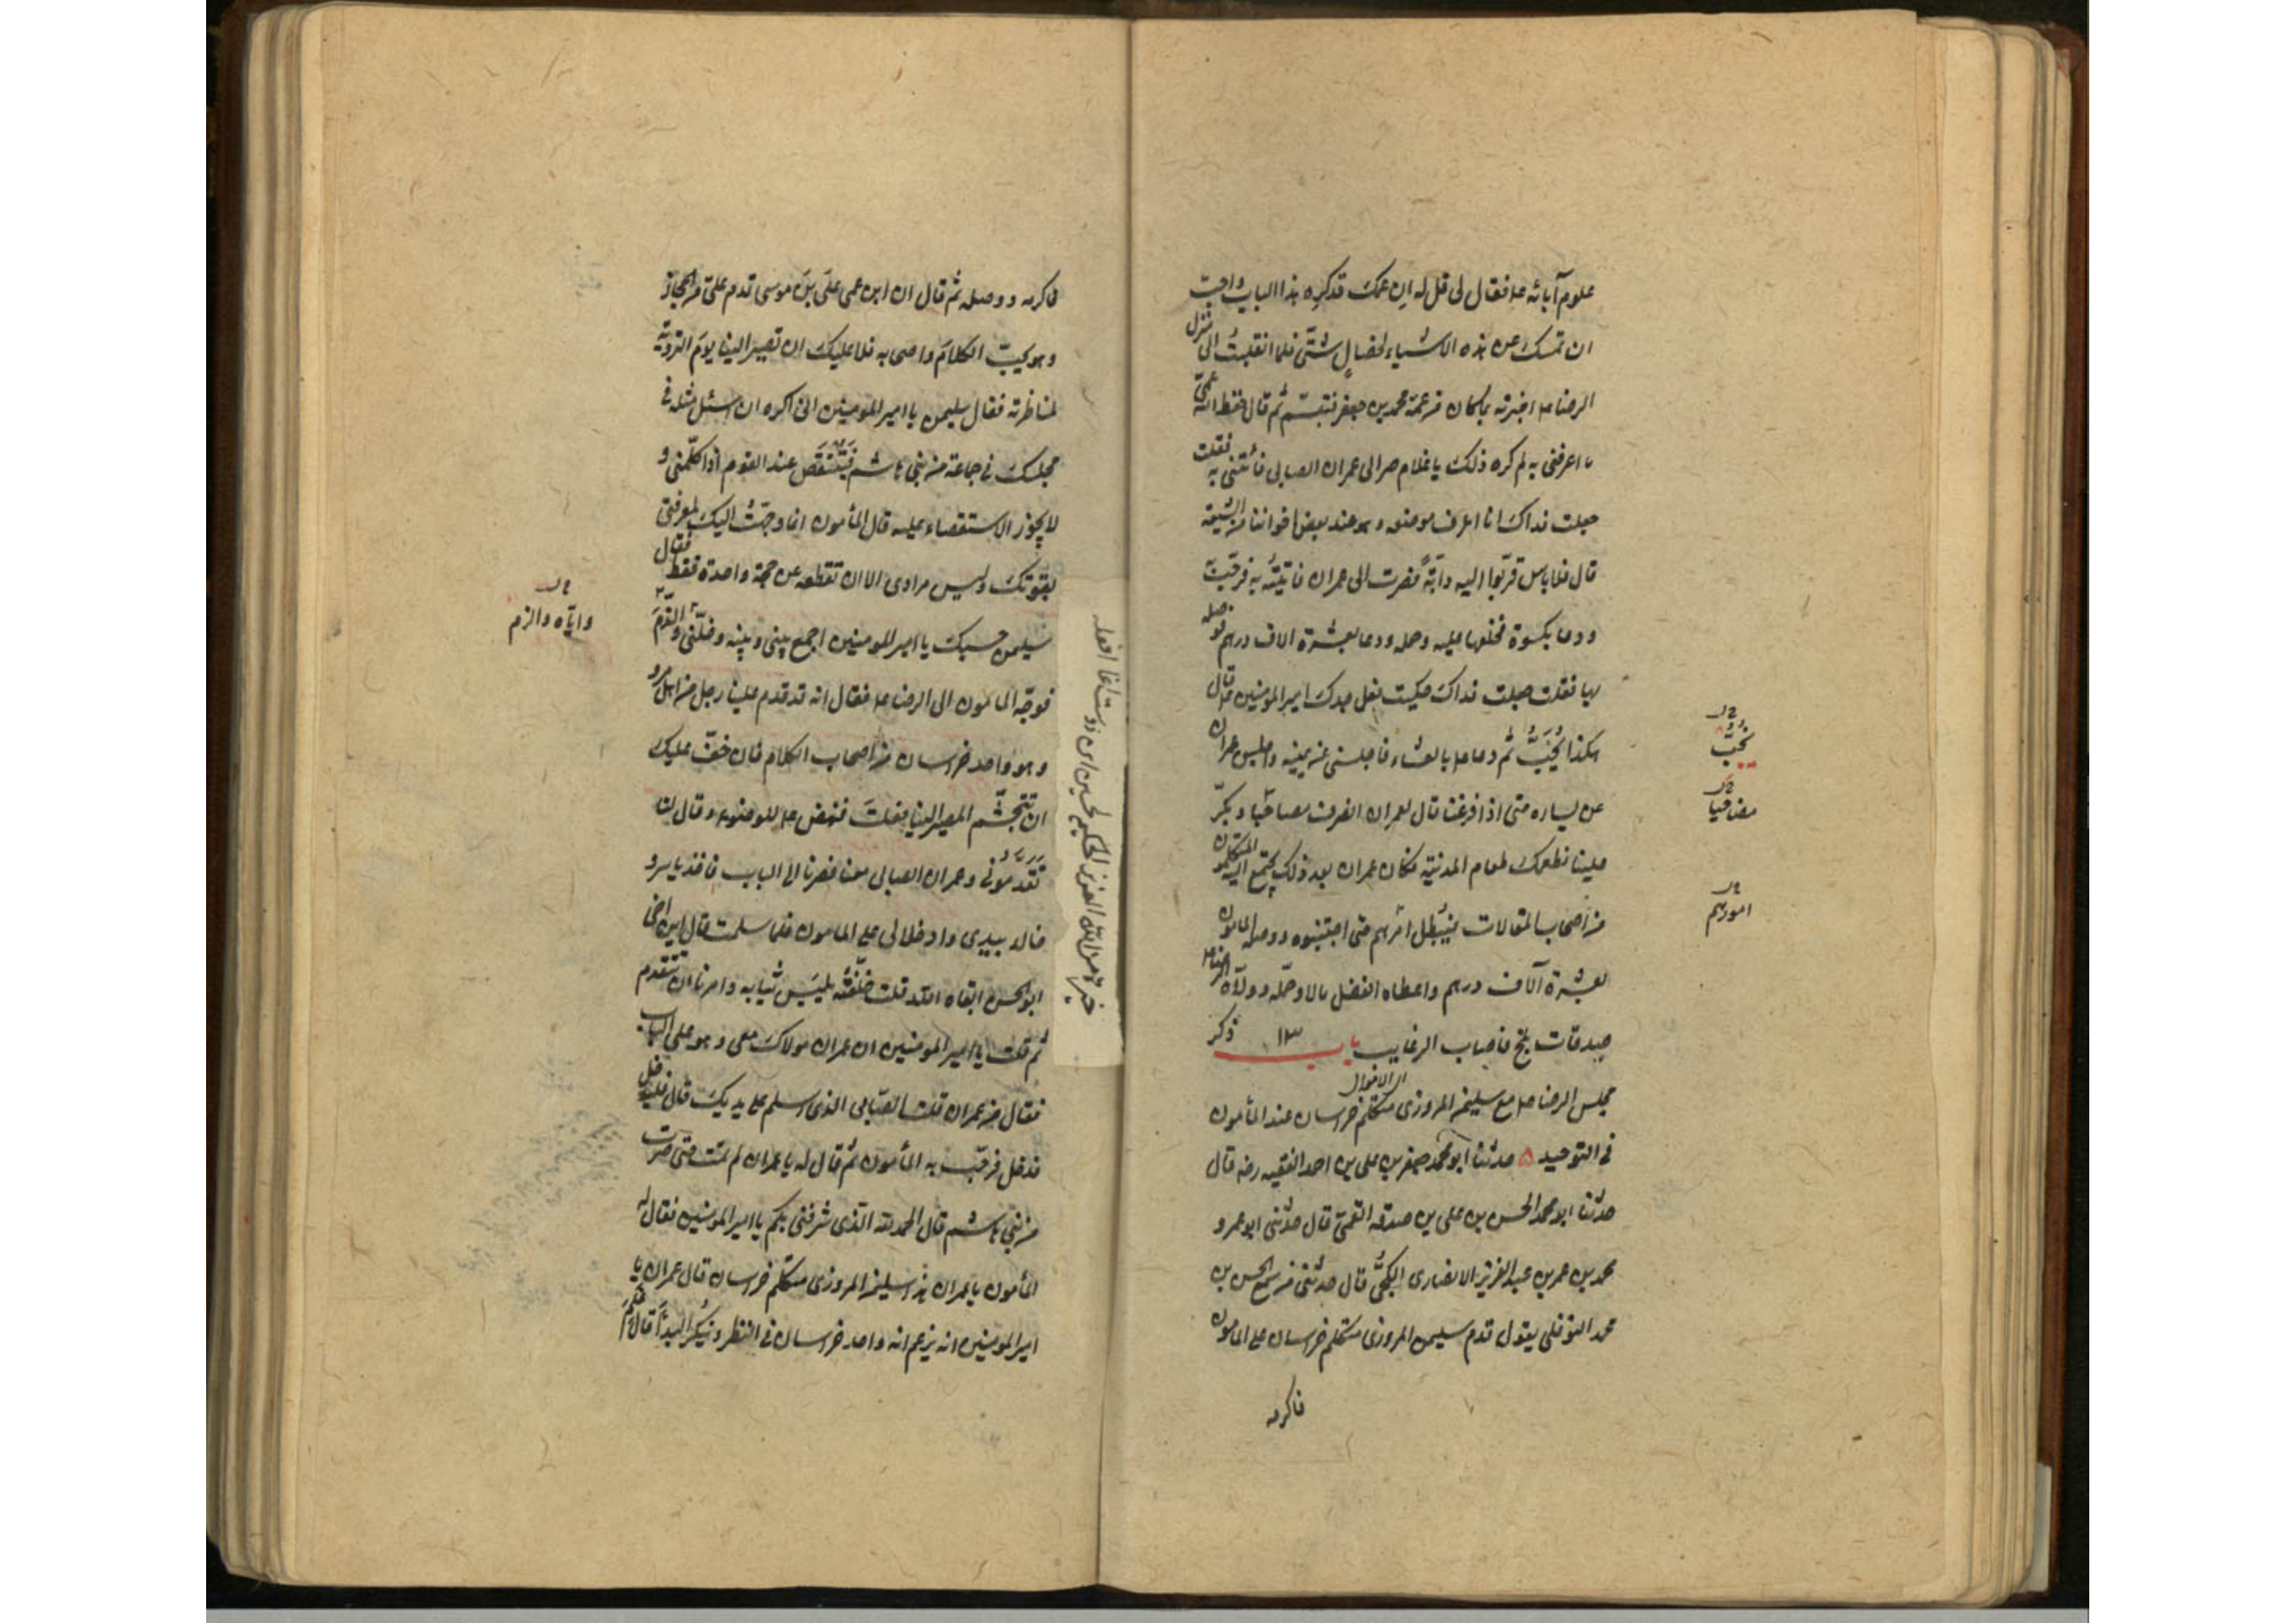 علوم آبائه ع م فقال لى قل له ان عمك قد كره هذا الباب واحب
ان تمسك عن هذه الاشياء لخصال شتّى فلما انقلبت الى منزل
الرضا ع م اخبرته بما كان من عمّه محمد بن جعفر فتبسّم ثم قال حفظ الله عمّى
ما اعرفنى به لم كره ذلك يا غلام صر الى عمران الصابى فأتنى به فقلت
جعلت فداك انا اعرف موضعه وهو عند بعض اخواننا من الشيعة
قال فلا باس قرّبوا اليه دابّةً فصرت الى عمران فاتيتُه به فرحّبَ
ودعا بكسوة فخلعها عليه وحمله ودعا بعشرة الاف درهم فوصله
بها فقلت جعلت فداك حكيت فعل جدك امير المومنين ع م قال
هكذا يُحِبَّ ثم دعا ع م بالعشاء فاجلسنى عن يمينه واجلس عمران
عن يساره حتى اذا فرغنا قال لعمران انصرف مصاحَبًا وبكّر
علينا نطعمك طعام المدنية فكان عمران بعد ذلك يجتمع اليه المتكلمون
من اصحاب المقالات فيُبطل امرهم حتى اجتنبوه ووصله المامون
بعشرة آلاف درهم واعطاه الفضل مالا وحمّله وولّاه الرضا ع م
صدقات بلخ فاصاب الرغايب باب ١٣ ذكر
مجلس الرضا ع م مع سليمن المروزى متكلّم خراسان عند المأمون
فى التوحيد ه حدثنا ابو محمد جعفر بن على بن احمد الفقيه رضه قال
حدثنا ابو محمد الحسن بن على بن صدقه القمىّ قال حدّثنى ابو عمرو
محمد بن عمر بن عبد العزيز الانصارى الكجّىّ قال حدثنى من سمع الحسن بن
محمد النوفلى يقول قدم سليمن المروزى متكلم خراسان على المامون
فاكرمه
نُحِبُّ
مصاحبا
امورهم
فاكرمه ووصله ثم قال ان ابن عمى علىَّ بنَ موسى قدم علىّ من الحجاز
وهو يحبّ الكلام واصحابه فلا عليك ان تصير الينا يومَ التروية
لمناظرته فقال سليمن يا امير المومنين انى اكره ان اسئل مثله فى
مجلسك فى جماعة من بنى هاشم فيَتَنَقَّص عند القوم اذا كلّمنى و
لا يجوز الاستقصاء عليه قال المأمون انما وجّهتُ اليكَ لمعرفتى
بقوّتك وليس مرادى الا ان تقطعه عن حجة واحدة فقط فقال
سليمن حسبك يا امير المومنين اجمع بينى وبينه وخلّنى والذّم
فوجّه المامون الى الرضا ع م فقال انه قد قدم علينا رجل من اهل مرو
وهو واحد خراسان من اصحاب الكلام فان خفّ عليك
ان تتجشّم المصير الينا فعلتَ فنهض ع م للوضوء وقال لنا
تَقَدَّمُونى وعمران الصابى معنا فصرنا الى الباب فاخذ ياسر و
خالد بيدى وادخلانى على المامون فلما سلمت قال اين اخى
ابو الحسن ابقاه الله قلت خلّفتُه يلبَس ثيابه وامرنا ان نتقدم
ثم قلت يا امير المومنين ان عمران مولاك معى وهو على الباب
فقال من عمران قلت الصّابى الذى اسلم على يديك قال فليدخل
فدخل فرحّب به المأمون ثم قال له يا عمران لم تمت حتى صرت
من بنى هاشم قال الحمد لله الّذى شرفنى بكم يا امير المومنين فقال له
المأمون يا عمران هذا سليمن المروزى متكلّم خراسان قال عمران يا
امير المومنين انه يزعم انه واحد خراسان فى النظر وينكر البدأ قال فلِمَ
وايّاه والزم